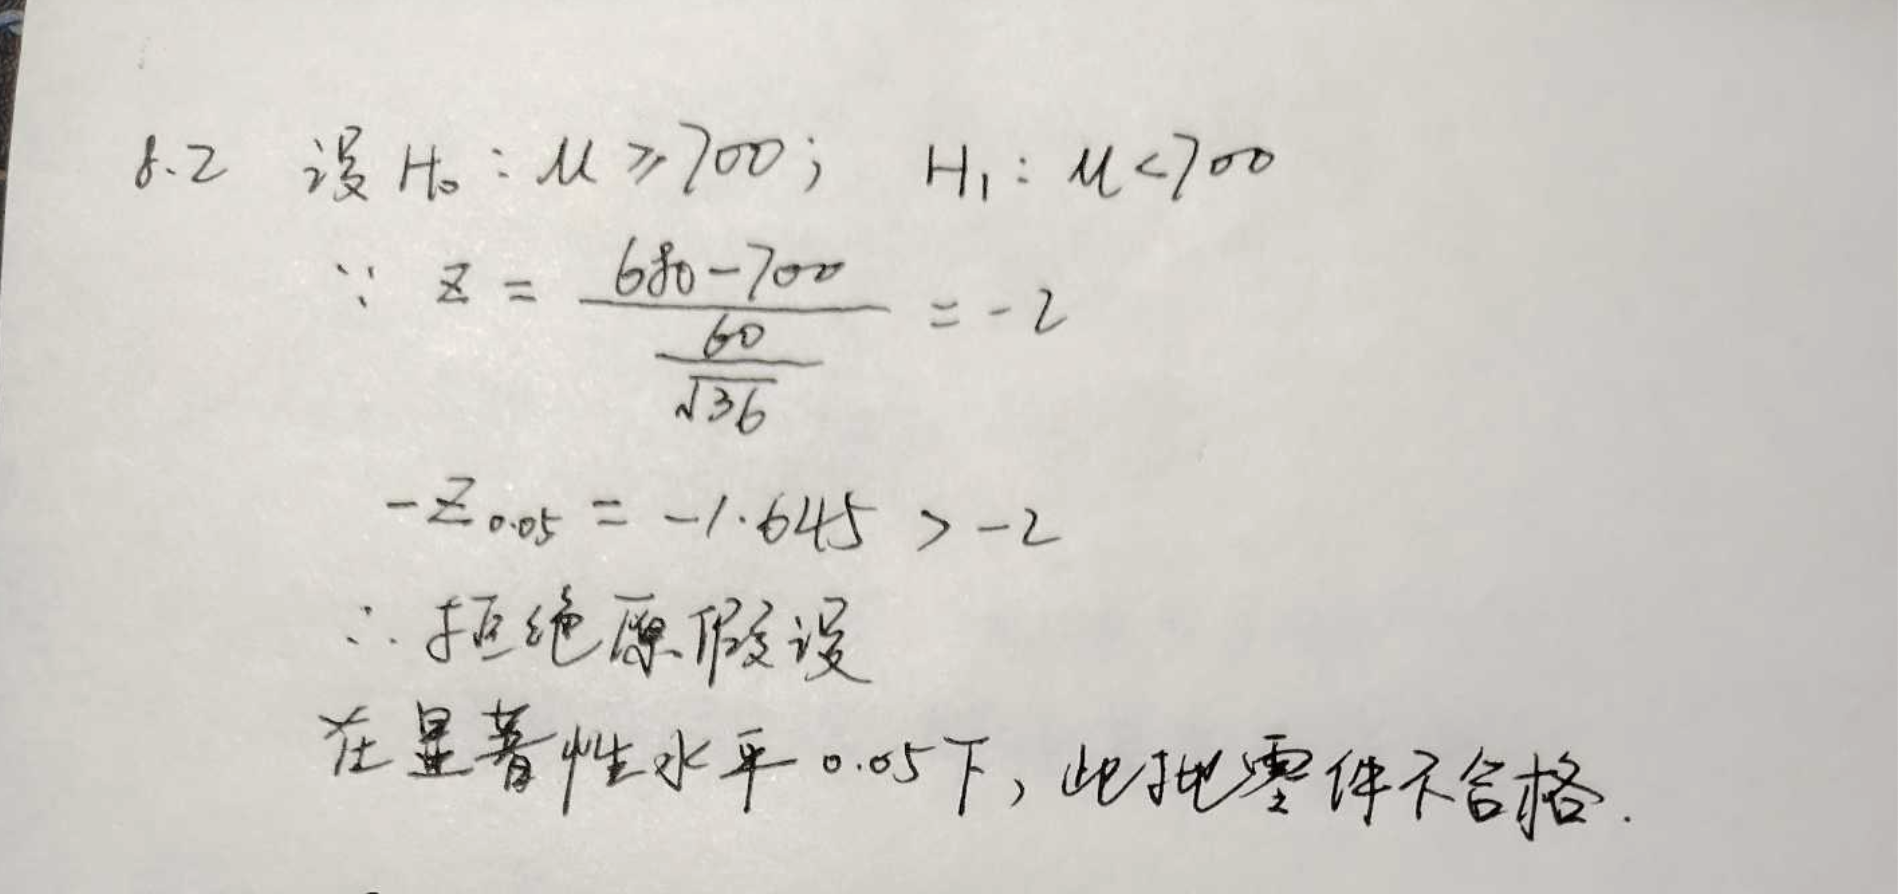 8.2 设 H₀: μ ≥ 700; H₁: μ < 700
∵ z = (680-700)/(60/√36) = -2
-z₀.₀₅ = -1.645 > -2
∴ 拒绝原假设
在显著性水平0.05下, 此批零件不合格.